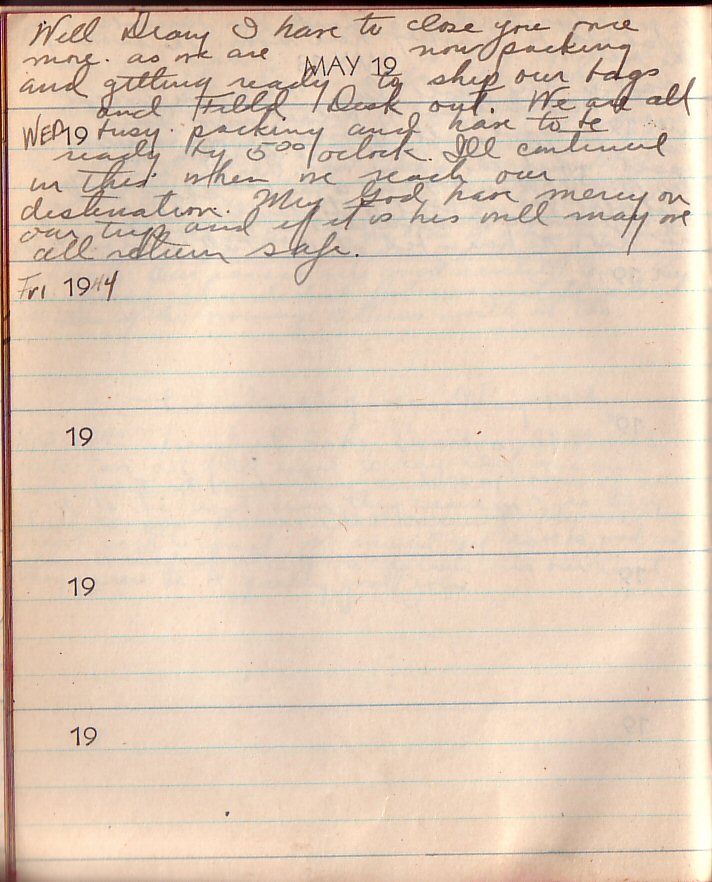 Well Diary I have to close you once
more. as we are now packing
MAY 19
and getting ready to ship our bags
and Field Desk out. We are all
WED 19 busy packing and have to be
ready by 5:00 oclock. Ill continue
in this when we reach our
destination. My God have mercy on
our trip and if it is his will may we
all return safe.
Fri 1944
19
19
19